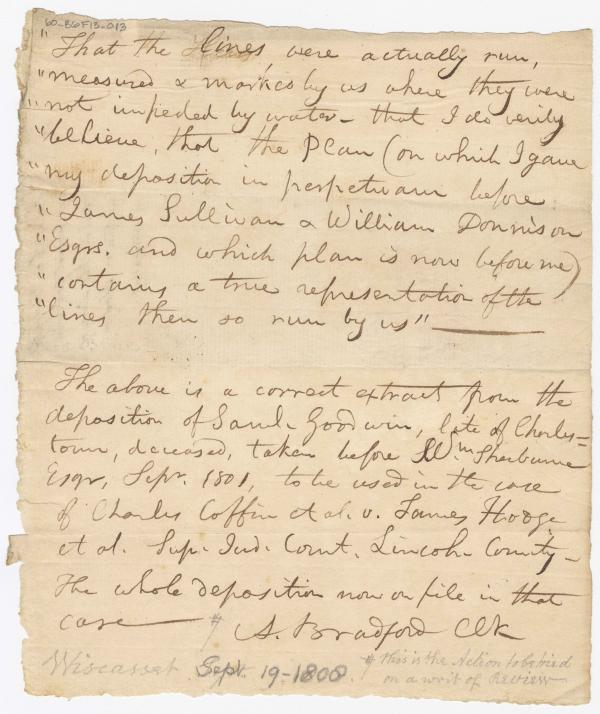 60-B6F13-013
"That the lines were actually run,
"measured & marked by us where they were
"not impeded by water- that I do verily
"believe, that the Plan (on which I gave
"my deposition in perpetuam before
"James Sullivan & William Donnison
"Esqrs. and which plan is now before me)
"contains a true representation of the
"lines then so run by us"
The above is a correct extract from the
deposition of Saml. Goodwin, late of Charles=
town, deceased, taken before Wm. Sherburne
Esqr, Sepr. 1801, to be used in the case
of Charles Coffin et al. v. James Hodge
et al. Sup. Jud. Court. Lincoln County-
The whole deposition now on file in that
case
A. Bradford Clk
Wiscasset Sept. 19-1808.
# this is the Action to be tried
on a writ of Review